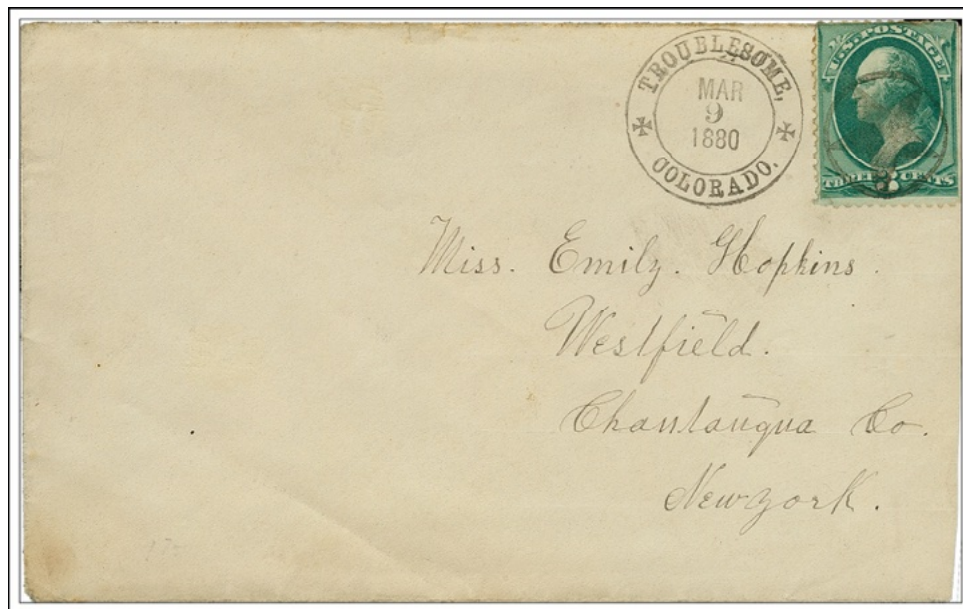 TROUBLESOME,
MAR
9
1880
COLORADO.
U.S. POSTAGE
THREE 3 CENTS
Miss. Emily. Hopkins.
Westfield.
Chautauqua Co.
New york.